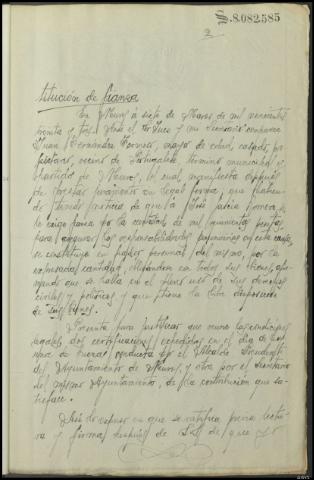 S.8.082.585
2
titución de fianza
En Muros á siete de Marzo de mil novecientos
treinta y tres. Ante el Sr Juez y mi Secretario comparece
Juan Fernandez Formoso, mayor de edad, casado, pro
pietario, vecino de Portugalete, término municipal y
partido de Muros, el cual manifiesta después
de prestar juramento en legal forma, que habien
do tenido noticia de que á José se le
exige fianza por la cantidad de mil quinientas pesetas
para asegurar las responsabilidades pecuniarias en esta causa,
se constituye en fiador personal del mismo, por la
expresada cantidad, con todos sus bienes, afir
mando que se halla en el pleno uso de sus derechos
civiles y políticos y que tiene la libre disposición
de sus bienes.
Presenta para justificar que reune las condiciones
legales, dos certificaciones expedidas en el día de hoy
una de buena conducta por el Alcalde Presidente
del Ayuntamiento de Muros, y otra por el Secretario
del mismo Ayuntamiento, de la contribución que sa-
tisface.
Leido que se ratifica previa lectu
ra y firma después de S.S. de que yo